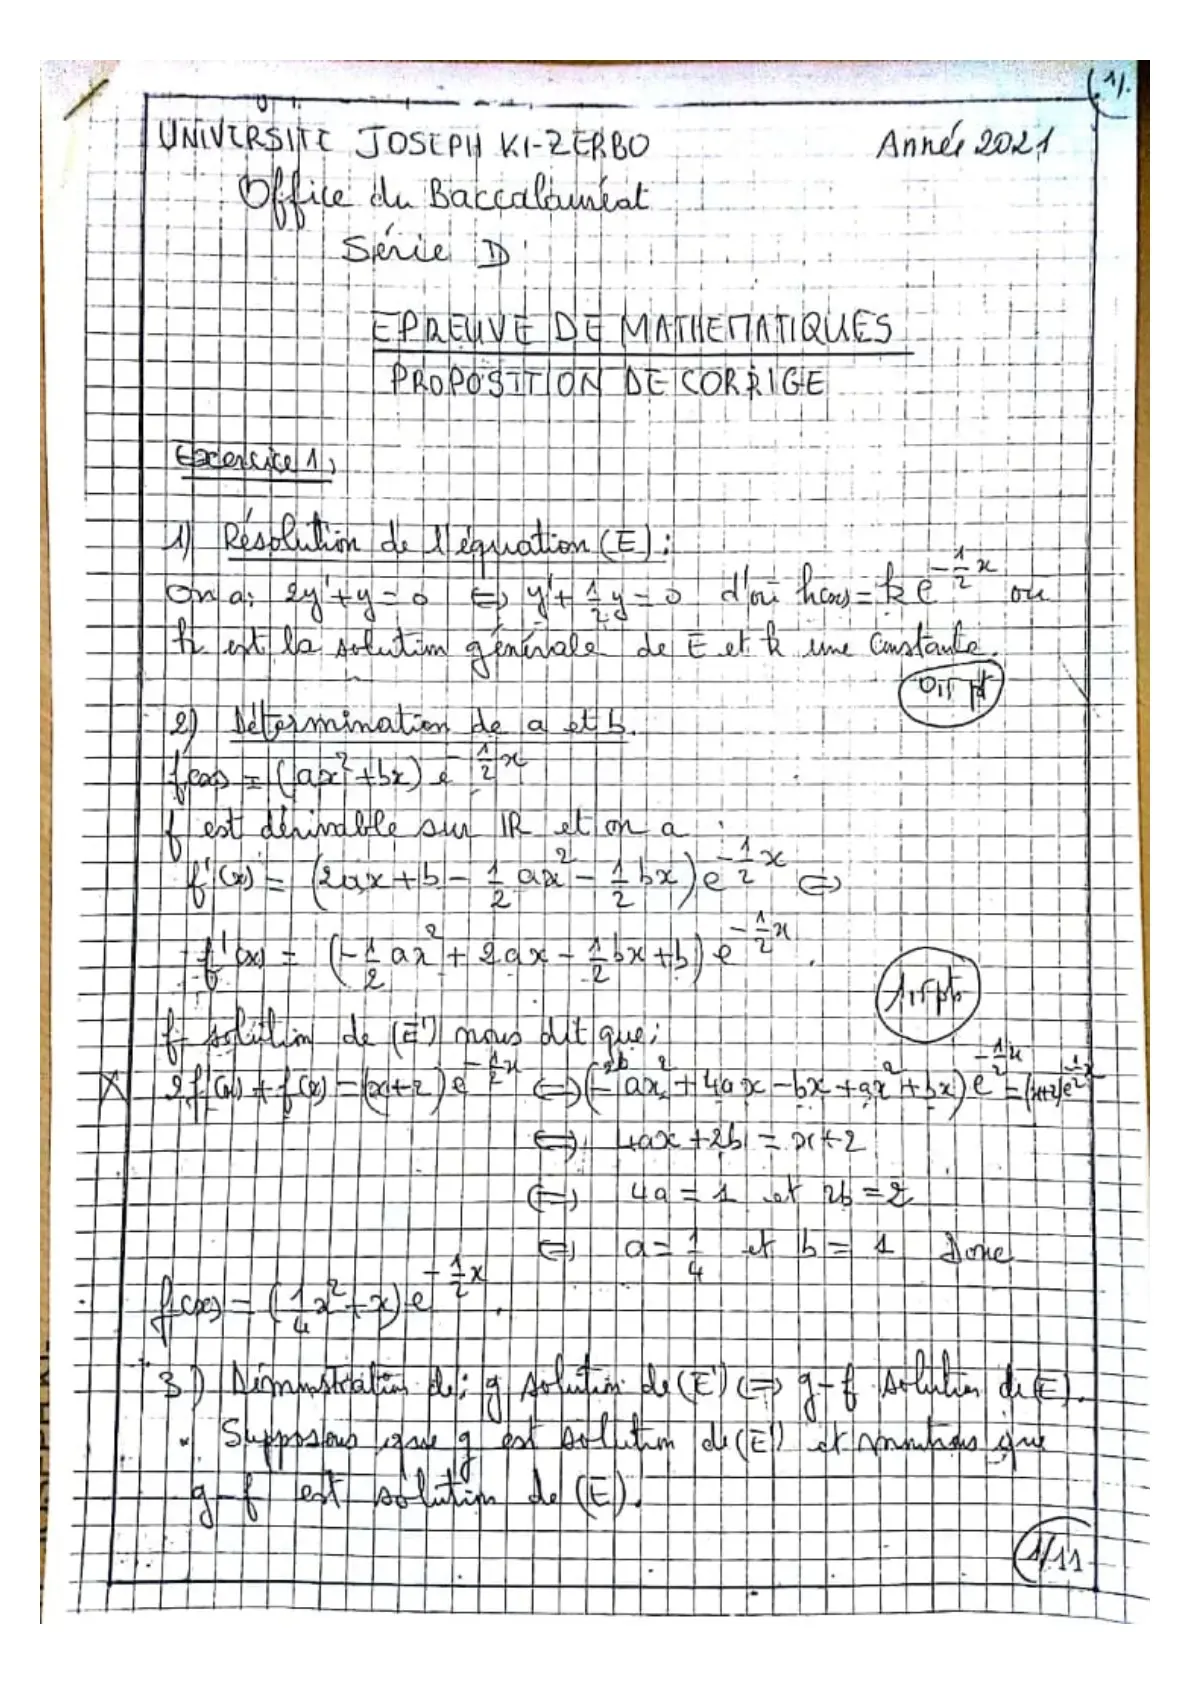 (1).
UNIVERSITE JOSEPH KI-ZERBO Année 2021
Office du Baccalauréat
Série D
EPREUVE DE MATHEMATIQUES
PROPOSITION DE CORRIGE
Exercice 1,
1) Résolution de l'équation (E) :
On a: 2y' + y = 0 ⟺ y' + 1/2 y = 0 d'où h(x) = k e^(-1/2 x) ou
h est la solution générale de E et k une constante.
0,5 pt
2) Détermination de a et b.
f(x) = (ax² + bx) e^(-1/2 x)
f est dérivable sur IR et on a :
f'(x) = (2ax + b - 1/2 ax² - 1/2 bx) e^(-1/2 x) ⟺
f'(x) = (-1/2 ax² + 2ax - 1/2 bx + b) e^(-1/2 x).
1,5 pts
f solution de (E') nous dit que;
2f'(x) + f(x) = (x+2) e^(-1/2 x) ⟺ (-ax² + 4ax - bx + 2b + ax² + bx) e^(-1/2 x) = (x+2)e^(-1/2 x)
⟺ 4ax + 2b = x + 2
⟺ 4a = 1 et 2b = 2
⟺ a = 1/4 et b = 1 Donc
f(x) = (1/4 x² + x) e^(-1/2 x).
3) Démonstration de : g solution de (E') ⟺ g-f solution de (E).
• Supposons que g est solution de (E') et montrons que
g-f est solution de (E).
1/11